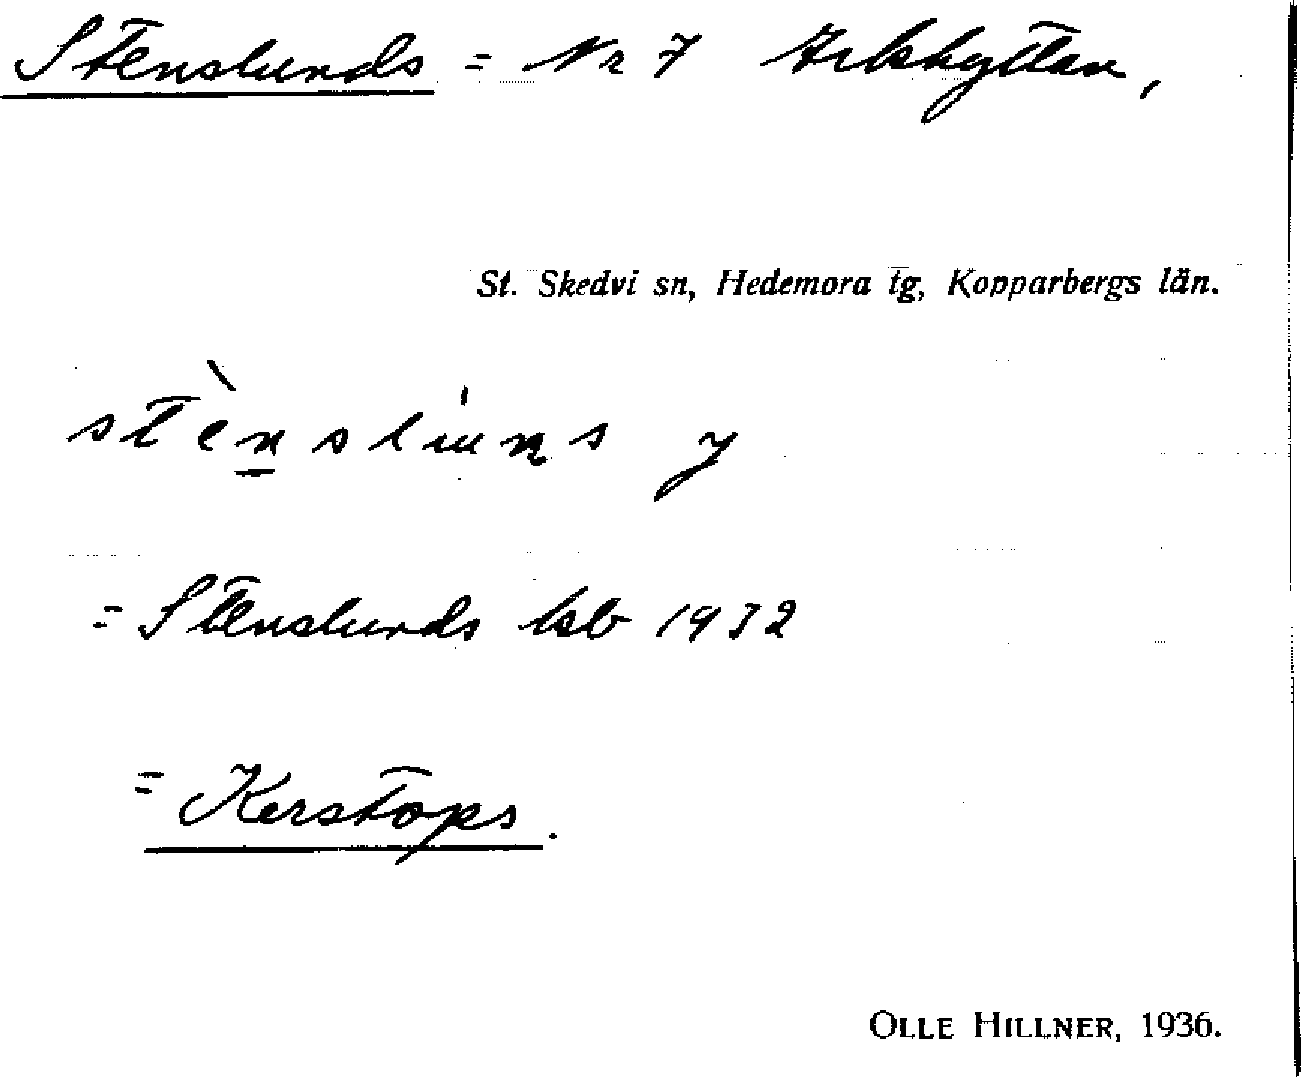 Stenslunds = Nr 7 Arkhyttan,
St. Skedvi sn, Hedemora tg, Kopparbergs län.
= Stenslunds ksb 1932
= Kerstops.
OLLE HILLNER, 1936.